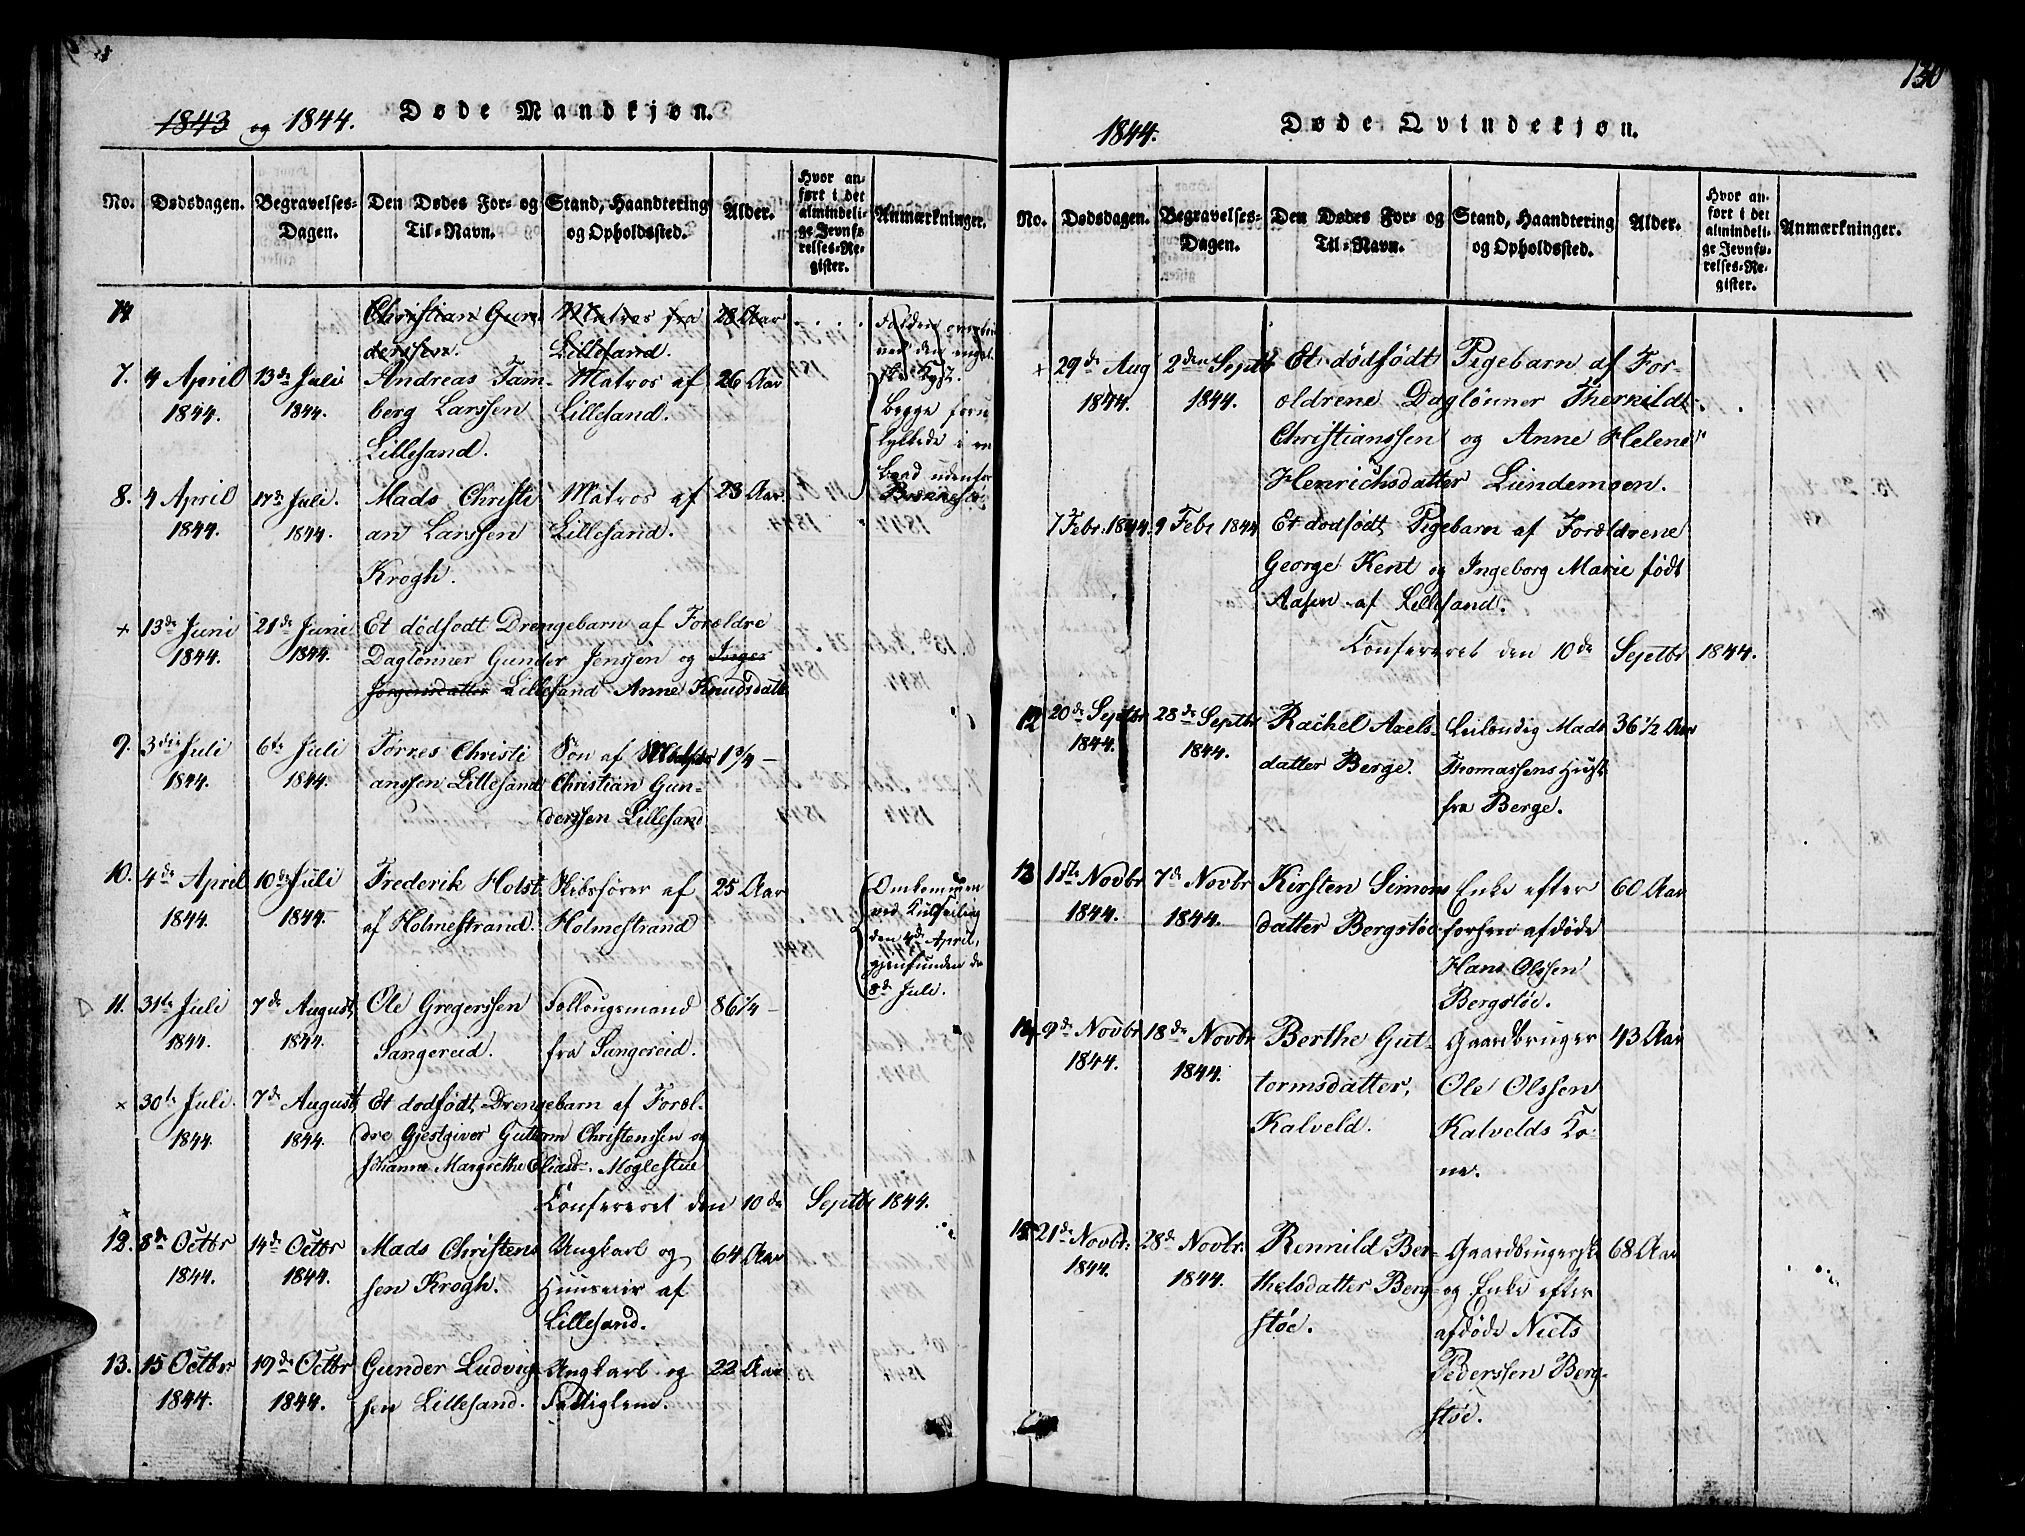 1843 og 1844. Døde Mandkjøn.
No. Dødsdagen. Begravelses-Dagen. Den Dødes For- og Til-Navn. Stand, Haandtering og Opholdssted. Alder. Hvor anført i det almindelige Jevnførelses-Register. Anmærkninger.
14 Christian Gun- Matros fra 28 Aar
derssen. Lillesand.
7. 4 April 13de Juli Andreas Tam- Matros af 26 Aar
1844. 1844. berg Larssen Lillesand.
Lillesand.
Begge foru
lykkede i en
Baad udenfor
8. 4 April 17de Juli. Mads Christi Matros af 23 Aar
1844. 1844. an Larssen Lillesand.
Krogh.
+ 13de Juni 21de Juni Et dødfødt Drengebarn af Forældre
1844. 1844. Daglønner Gunder Jenssen og Inger
Jørgensdatter Lillesand Anne Knudsdatt
9. 3die Juli 6te Juli Tørres Christi Søn af Matros 1 3/4 -
1844. 1844. anssen Lillesand Christian Gun-
derssen Lillesand
10. 4de April 10de Juli Frederik Holst Skibsfører af 25 Aar Omkommen
1844. 1844. af Holmestrand. Holmestrand ved Kulseiling
den 4de April,
gjenfunden d.
8de Juli.
11. 31te Juli 7de August Ole Gregerssen Follougsmand 86 1/4 -
1844. 1844. Sangereid. fra Sangereid.
+ 30te Juli. 7de August Et dødfødt Drengebarn af Foræl-
1844. 1844. dre Gjestgiver Guttorm Christenssen og
Johanne Margrethe Eliasd. Møglestue
Confereret den 10de Septbr 1844.
+
12. 8de Octbr 14de Octbr Mads Christens Ungkarl og 64 Aar
1844. 1844. sen Krogh. Huuseier af
Lillesand.
13. 15 Octbr 19de Octbr Gunder Ludvig- Ungkarl og 22 Aar
1844. 1844. sen Lillesand. Fattiglem.
130
1844. Døde Qvindekjøn.
No. Dødsdagen. Begravelses-Dagen. Den Dødes For- og Til-Navn. Stand, Haandtering og Opholdssted. Alder. Hvor anført i det almindelige Jevnførelses-Register. Anmærkninger.
+ 29de Aug 2den Septbr Et dødfødt Pigebarn af For-
1844. 1844. ældrene Daglønner Therkild
Christianssen og Anne Helene
Henrichsdatter Lundemoen.
7 Febr. 1844. 9 Febr 1844 Et dødfødt Pigebarn af Forældrene
George Kent og Ingeborg Marie født
Aasen af Lillesand.
Confereret den 10de Septbr 1844.
12 20de Septbr 28de Septbr Rachel Axels- Leilændig Mads 36 1/2 Aar
1844. 1844. datter Berge. Thomassens Hust.
fra Berge.
13 1ste Novbr 7de Novbr Kirsten Simons Enke efter 60 Aar
1844. 1844. datter Bergstøe forhen afdøde
Hans Olssen
Bergstøe.
14 9de Novbr 18de Novbr Berthe Gut- Gaardbruger 43 Aar
1844. 1844. tormsdatter, Ole Olssen
Kalveld. Kalvelds Ko-
ne.
15 21de Novbr. 28de Novbr. Rennild Ber- Gaardbrugerske 68 Aar
1844. 1844. thelsdatter Berg- og Enke efter
støe. afdøde Niels
Pederssen Berg-
støe.